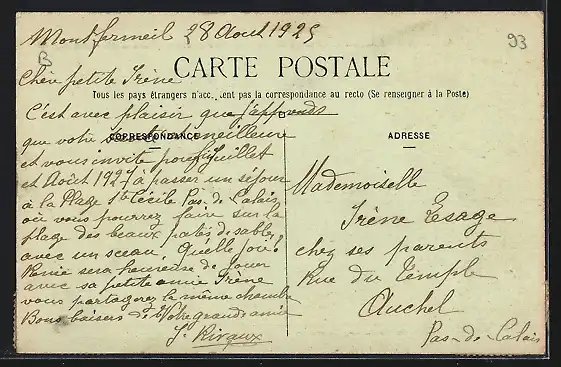 Montfermeil 28 Août 1925
93
B
CARTE POSTALE
Chère petite Irène
Tous les pays étrangers n'acc tent pas la correspondance au recto (Se renseigner à la Poste)
C'est avec plaisir que j'apprends
que votre santé est meilleure
CORRESPONDANCE
et vous invite pour Juillet
et Août 1927 à passer un séjour
à la Plage Ste Cécile Pas-de-Calais
où vous pourrez faire sur la
plage des beaux patés de sables
avec un sceau. Quelle joie!
Renée sera heureuse de jouer
avec sa petite amie Irène
vous partagerez la même chambre
Bons baisers de Votre grande amie
J. Rivaux
ADRESSE
Mademoiselle
Irène Lesage
chez ses parents
Rue du Temple
Auchel
Pas-de-Calais